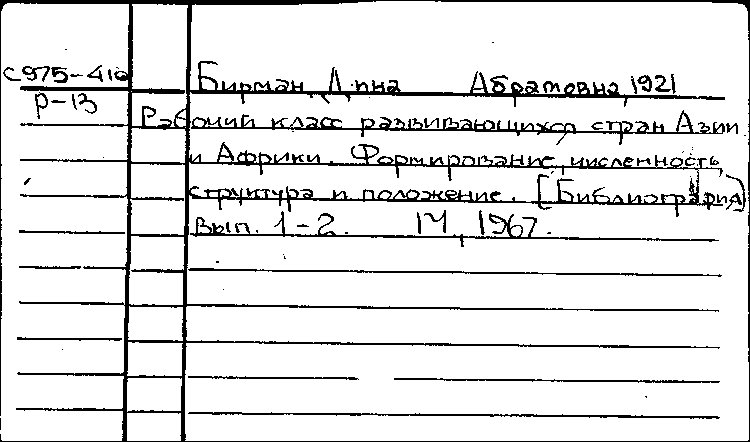 С975-416 Бирман, Дина Абрамовна, 1921
Р-13
Рабочий класс развивающихся стран Азии
и Африки. Формирование, численность,
структура и положение. [Библиография]
Вып. 1-2. М, 1967.